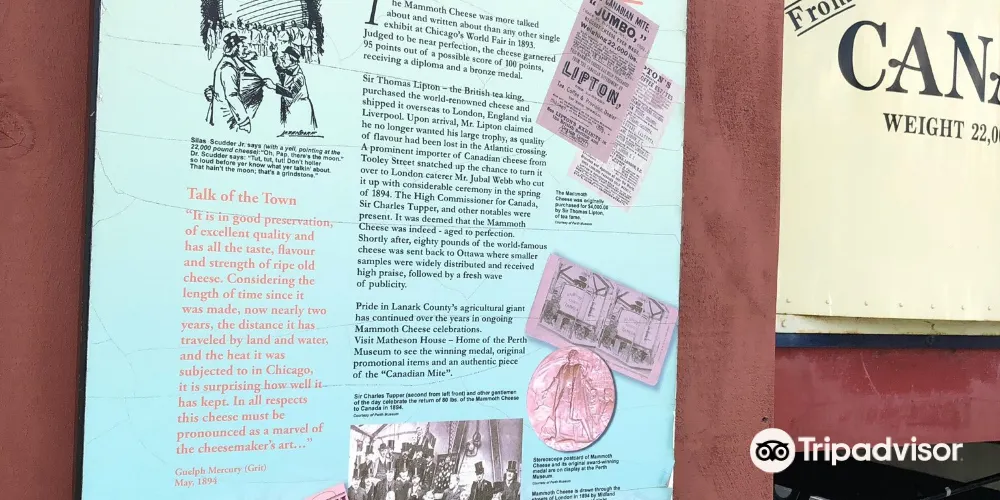 Silas Scudder Jr. says (with a yell, pointing at the
22,000 pound cheese): "Oh, Pap, there's the moon."
Dr. Scudder says: "Tut, tut, tut! Don't holler
so loud before yer know what yer talkin' about.
That hain't the moon; that's a grindstone."
Talk of the Town
"It is in good preservation,
of excellent quality and
has all the taste, flavour
and strength of ripe old
cheese. Considering the
length of time since it
was made, now nearly two
years, the distance it has
traveled by land and water,
and the heat it was
subjected to in Chicago,
it is surprising how well it
has kept. In all respects
this cheese must be
pronounced as a marvel of
the cheesemaker's art…"
Guelph Mercury (Grit)
May, 1894
the Mammoth Cheese was more talked
about and written about than any other single
exhibit at Chicago's World Fair in 1893.
Judged to be near perfection, the cheese garnered
95 points out of a possible score of 100 points,
receiving a diploma and a bronze medal.
Sir Thomas Lipton – the British tea king,
purchased the world-renowned cheese and
shipped it overseas to London, England via
Liverpool. Upon arrival, Mr. Lipton claimed
he no longer wanted his large trophy, as quality
of flavour had been lost in the Atlantic crossing.
A prominent importer of Canadian cheese from
Tooley Street snatched up the chance to turn it
over to London caterer Mr. Jubal Webb who cut
it up with considerable ceremony in the spring
of 1894. The High Commissioner for Canada,
Sir Charles Tupper, and other notables were
present. It was deemed that the Mammoth
Cheese was indeed - aged to perfection.
Shortly after, eighty pounds of the world-famous
cheese was sent back to Ottawa where smaller
samples were widely distributed and received
high praise, followed by a fresh wave
of publicity.
Pride in Lanark County's agricultural giant
has continued over the years in ongoing
Mammoth Cheese celebrations.
Visit Matheson House – Home of the Perth
Museum to see the winning medal, original
promotional items and an authentic piece
of the "Canadian Mite".
Sir Charles Tupper (second from left front) and other gentlemen
of the day celebrate the return of 80 lbs. of the Mammoth Cheese
to Canada in 1894.
Courtesy of Perth Museum
CANADIAN MITE.
"JUMBO,"
Weighing 22,000 lbs
LIPTON,
The Mammoth
Cheese was originally
purchased for $4,000.00
by Sir Thomas Lipton,
of tea fame.
Courtesy of Perth Museum
Stereoscope postcard of Mammoth
Cheese and its original award-winning
medal are on display at the Perth
Museum.
Courtesy of Perth Museum
Mammoth Cheese is drawn through the
streets of London in 1894 by Midland
From
CANA
WEIGHT 22,0
Tripadvisor